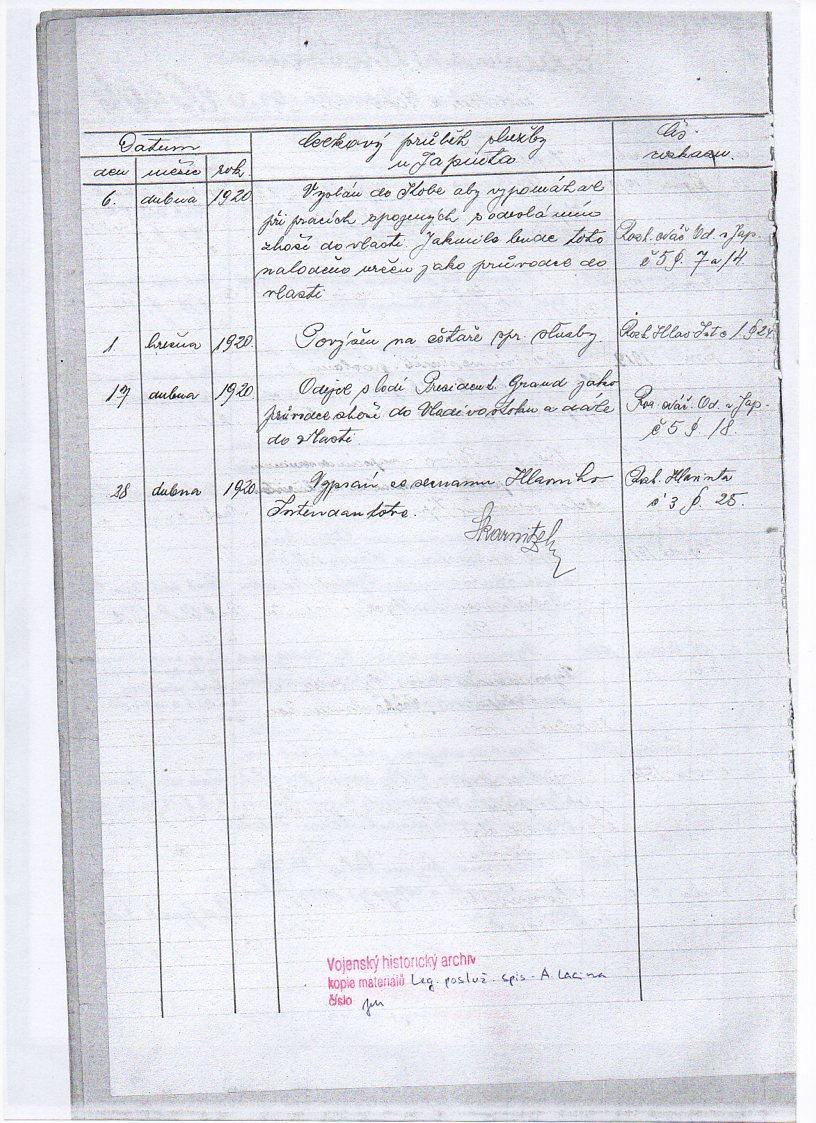 Datum
Celkový průběh služby
u Japinta
Čís.
rozkazu.
den měsíc rok
6. dubna 1920.
Vyslán do Kobe aby vypomáhal
při pracích spojených s odesláním
zboží do vlasti. Jakmile bude toto
naloděno určen jako průvodce do
vlasti
Od. v Jap.
č 5 §. 7 a 14.
1. března 1920.
Povýšen na četaře spr. služby.
1 § 24
17 dubna 1920.
Odejel s lodí President Grand jako
průvodce zboží do Vladivostoku a dále
do vlasti
Od. v Jap.
č 5 §. 18.
28 dubna 1920.
Vypsán ze seznamu Hlavního
Intendantstva.
Hlavinta
č 3 §. 25.
Vojenský historický archiv
kopie materiálů Leg. posluž. spis - A. Lacina
číslo